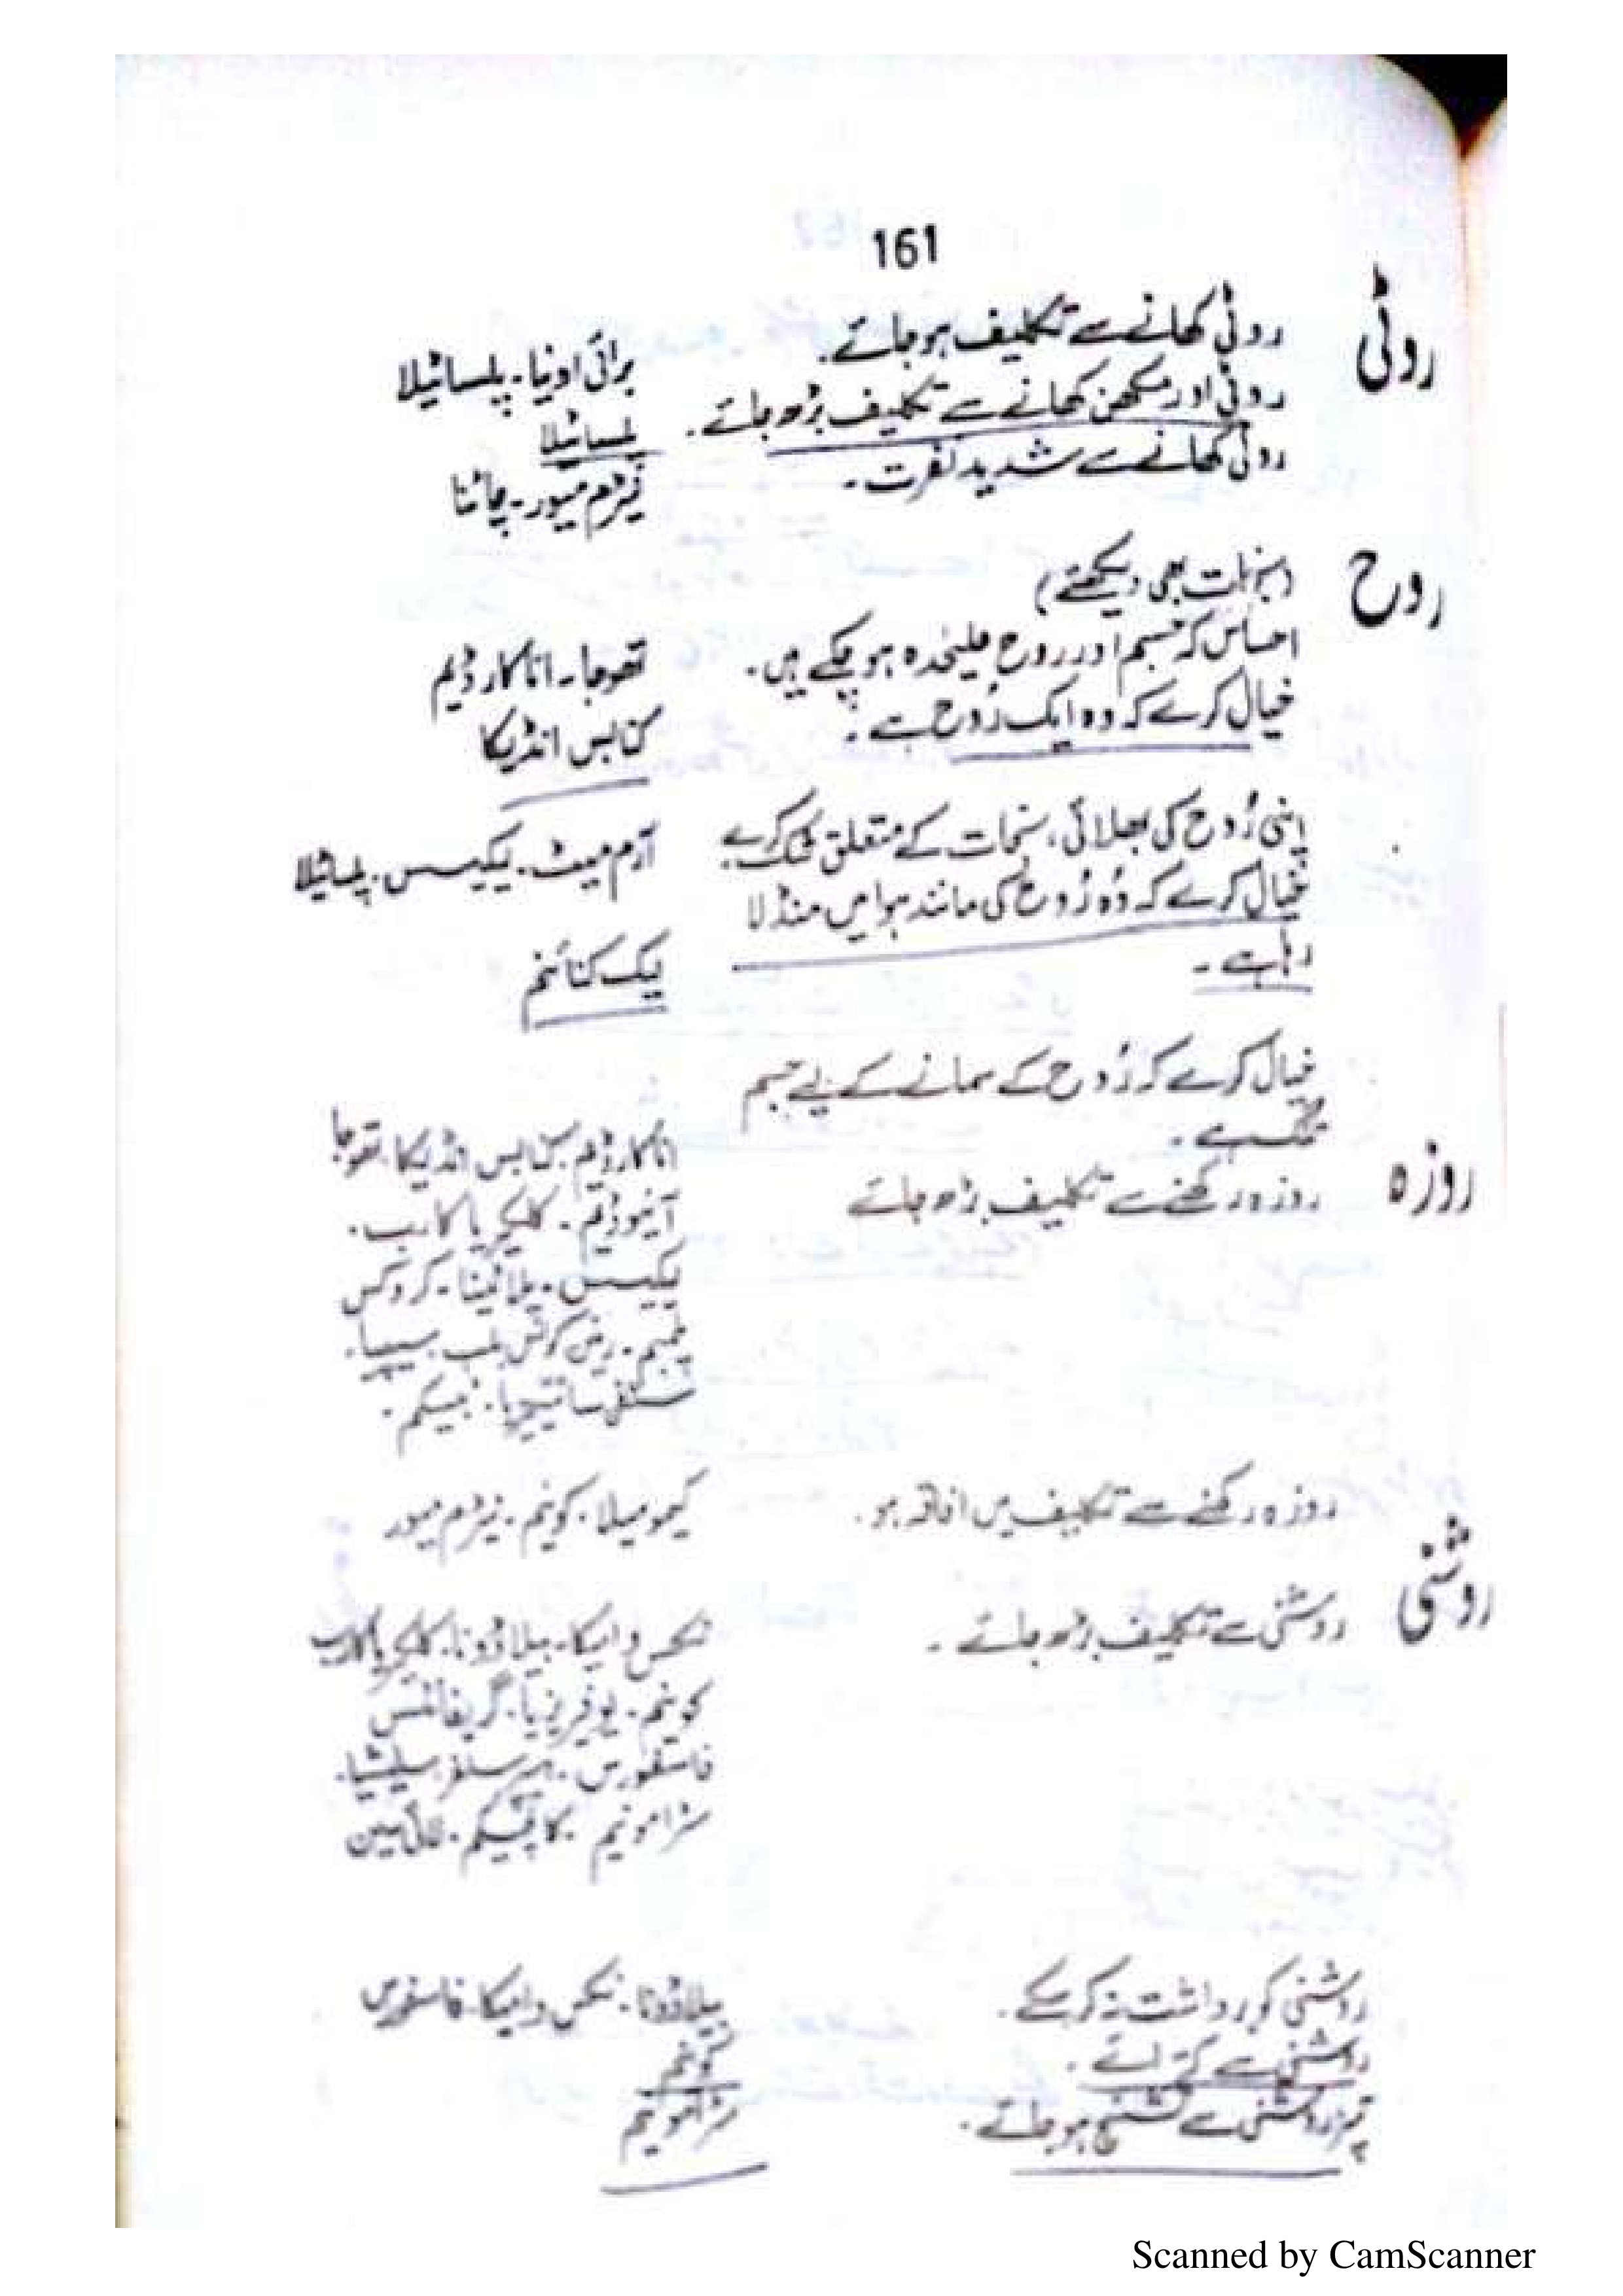 161
روٹی
روٹی کھانے سے تکلیف ہو جائے۔ برائی اونیا۔ پلساٹیلا
روٹی اور مکھن کھانے سے تکلیف بڑھ جائے۔ پلساٹیلا
روٹی کھانے سے شدید نفرت۔ نیٹرم میور۔ چائنا
روح
(نجات بھی دیکھئے)
احساس کہ جسم اور روح علیٰحدہ ہو چکے ہیں۔ تھوجا۔ اناکارڈیم
خیال کرے کہ وہ ایک رُوح ہے۔ کنابس انڈیکا
اپنی رُوح کی بھلائی، نجات کے متعلق شک کرے۔ آرم میٹ۔ لیکیسس۔ پلساٹیلا
خیال کرے کہ وُہ رُوح کی مانند ہوا میں منڈلا
رہا ہے۔ لیک کنائنم
خیال کرے کہ رُوح کے سمانے کے لیے جسم
تنگ ہے۔ اناکارڈیم۔ کنابس انڈیکا۔ تھوجا
روزہ
روزہ رکھنے سے تکلیف بڑھ جائے آئیوڈیم۔ کلکیریا کارب۔
لیکیسس۔ پلاٹینا۔ کروکس
پلمبم۔ سیپیا۔
سٹفی سائیگریا۔ ٹبیکم۔
روزہ رکھنے سے تکلیف میں افاقہ ہو۔ کیمومیلا۔ کونیم۔ نیٹرم میور
روشنی
روشنی سے تکلیف بڑھ جائے۔ نکس وامیکا۔ بیلاڈونا۔ کلکیریا کارب
کونیم۔ یوفریزیا۔ گریفائٹس
فاسفورس۔ سلفر۔ سلیشیا۔
سٹرامونیم۔ کاپسیکم۔ لائی سین
روشنی کو برداشت نہ کر سکے۔ بیلاڈونا۔ نکس وامیکا۔ فاسفورس
روشنی سے کترائے۔ کونیم
تیز روشنی سے تشنج ہو جائے۔ سٹرامونیم
Scanned by CamScanner